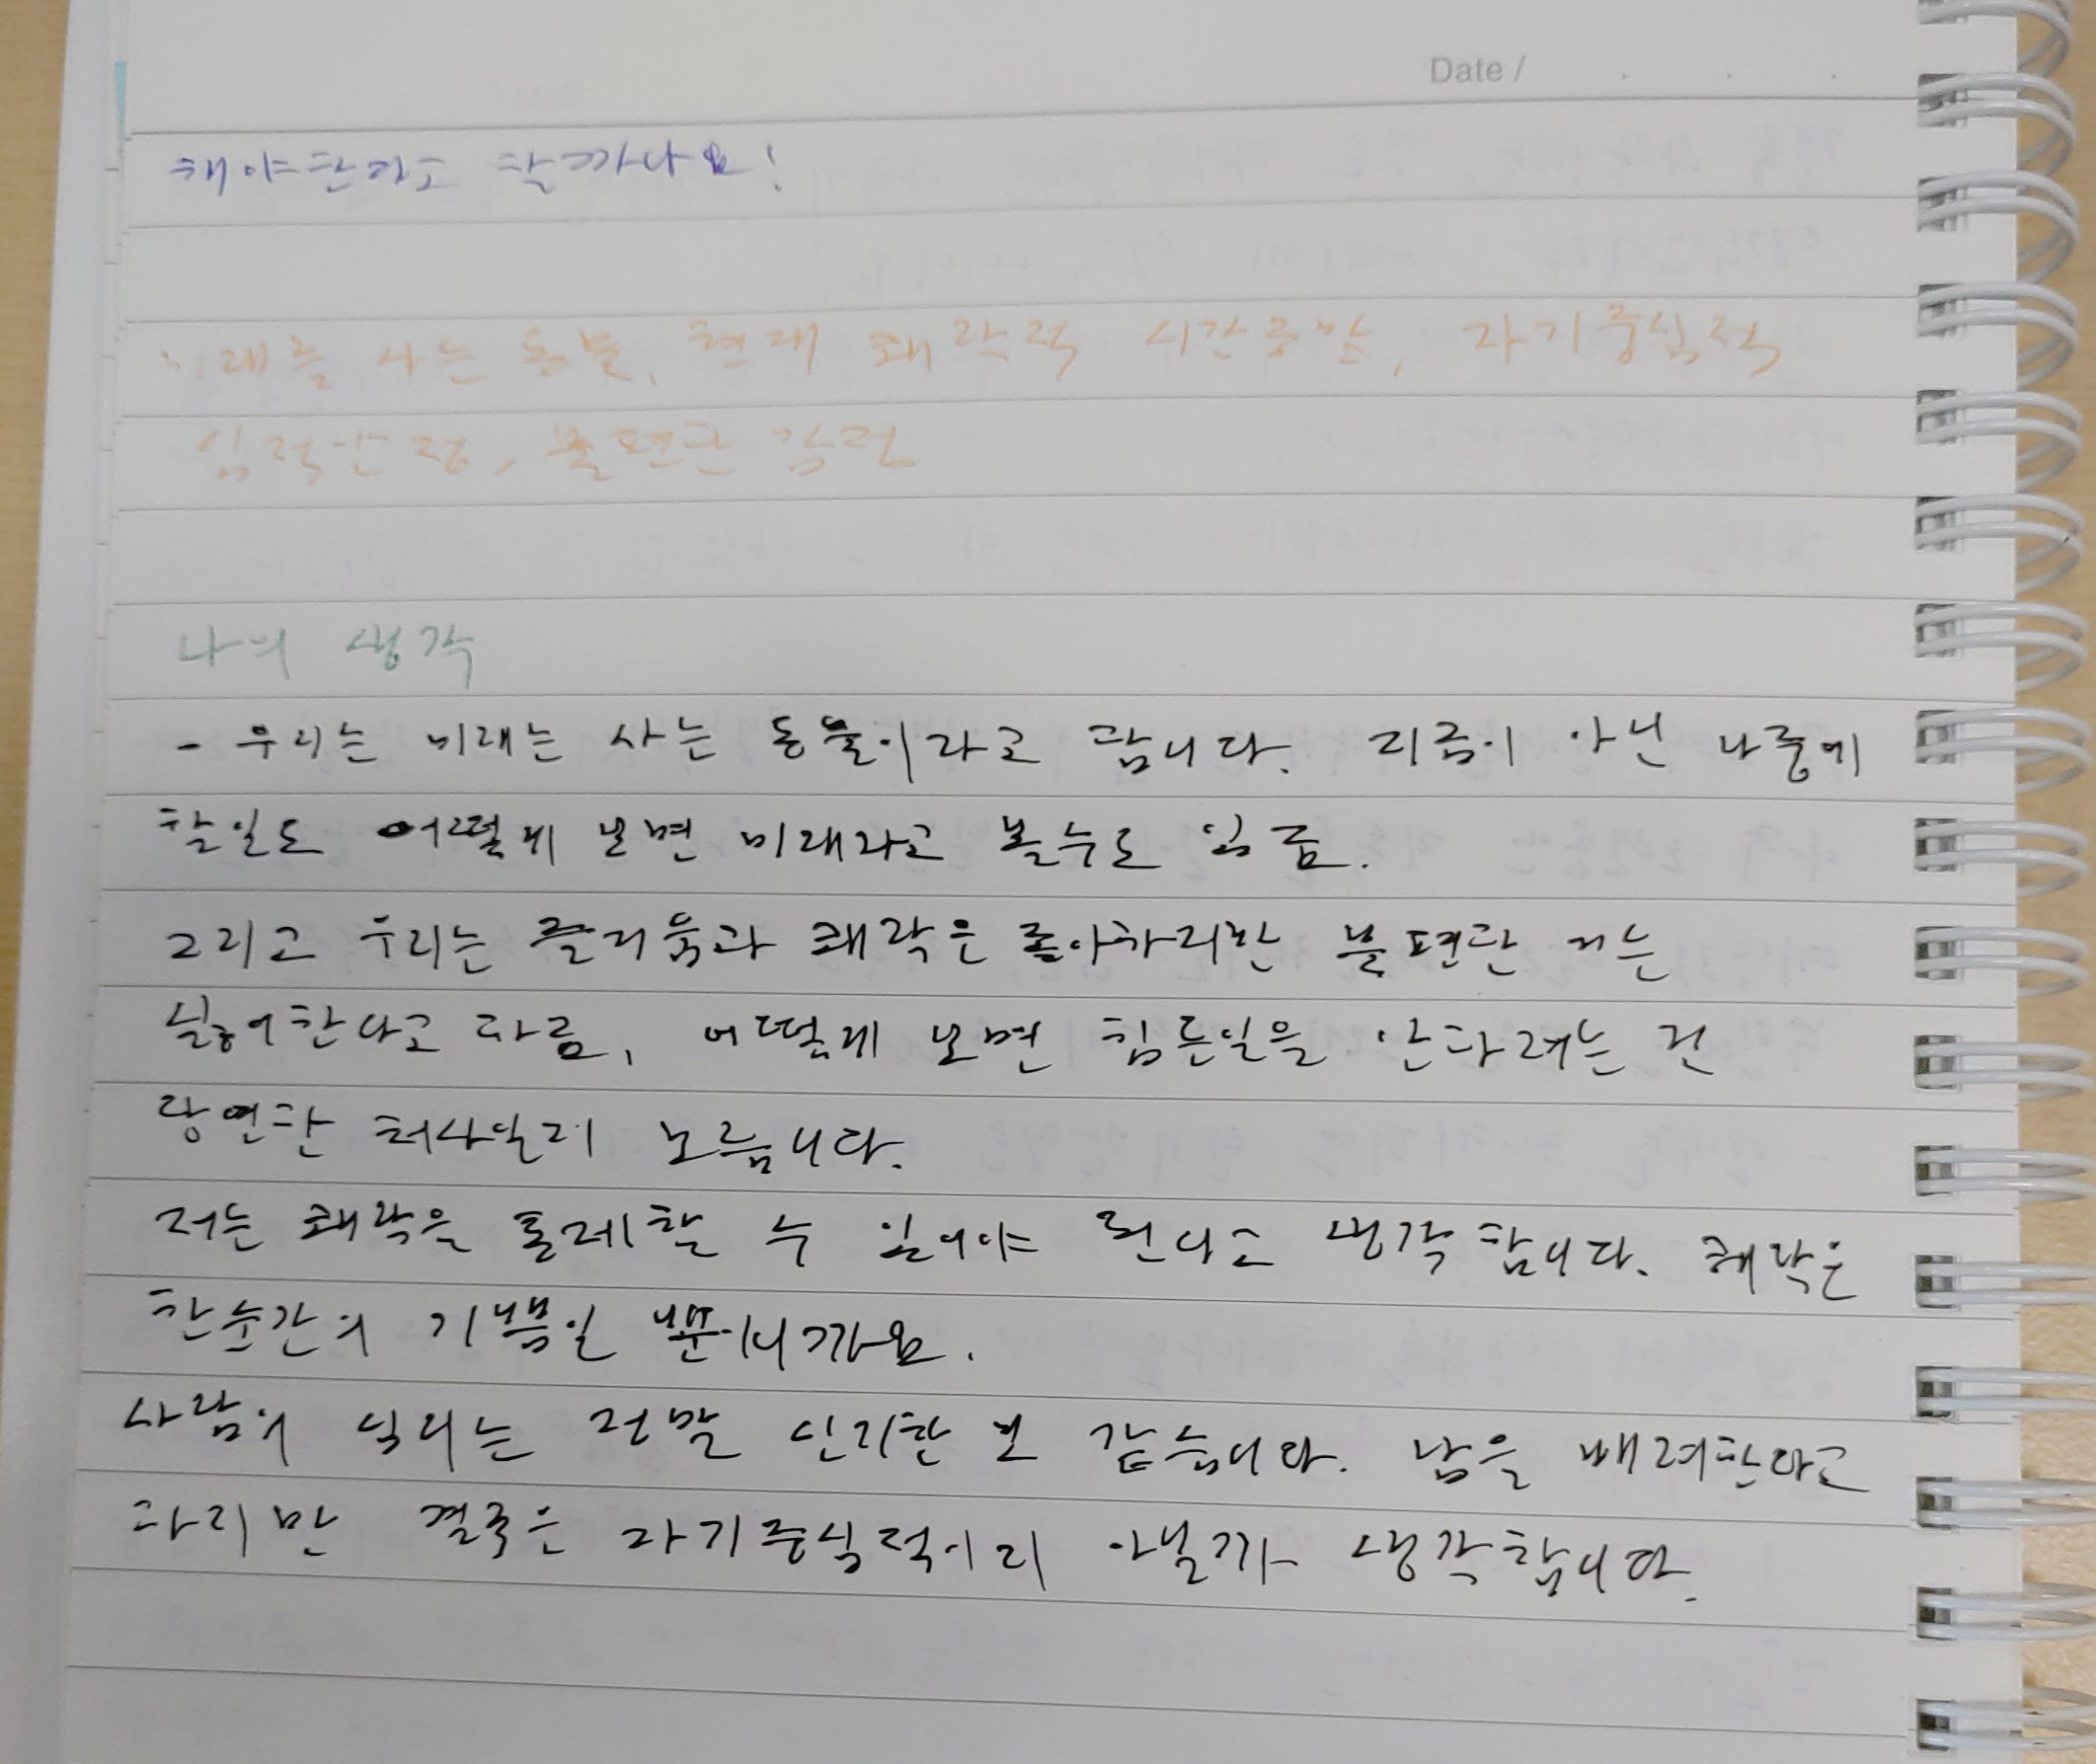 Date / . . .
해야한다고 할까나요!
미래를 사는 동물, 현재 쾌락적 시간증발, 자기중심적
심적안정, 불편한 감정
나의 생각
- 우리는 미래는 사는 동물이라고 합니다. 지금이 아닌 나중에
할일도 어떻게 보면 미래라고 볼수도 있죠.
그리고 우리는 즐거움과 쾌락은 좋아하지만 불편한 거는
싫어한다고 하죠, 어떻게 보면 힘든일을 안하려는 건
당연한 처사일지 모릅니다.
저는 쾌락을 통제할 수 있어야 된다고 생각합니다. 쾌락은
한순간의 기쁨일 뿐이니까요.
사람의 심리는 정말 신기한 것 같습니다. 남을 배려한다고
하지만 결국은 자기중심적이지 아닐까 생각합니다.